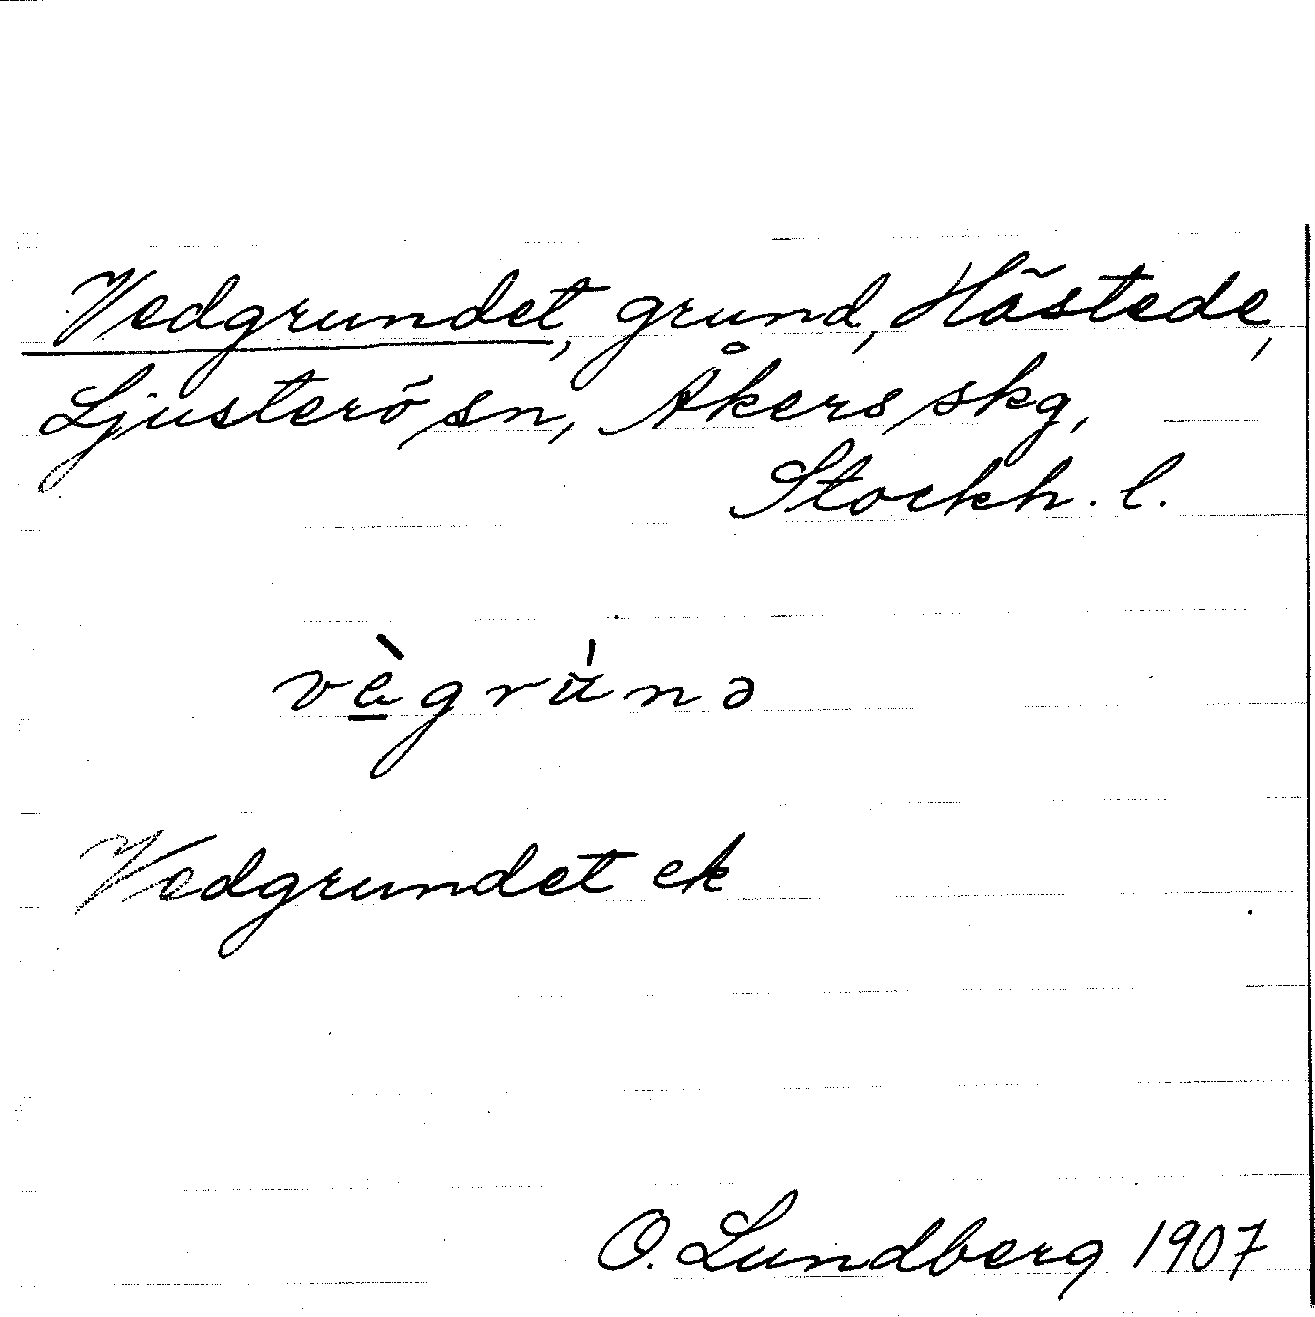 Vedgrundet, grund, Hästede,
Ljusterö sn, Åkers skg,
Stockh. l.
vè̲grụ́nə
Vedgrundet ek
O. Lundberg 1907